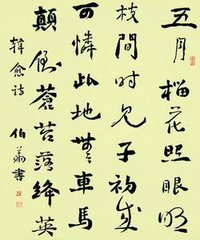 五月榴花照眼明
枝間时见子初成
可憐此地無車馬
顛倒蒼苔落絳英
韓愈诗 伯書